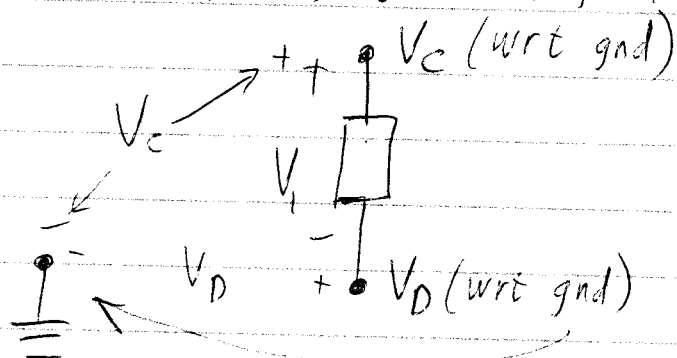 + + V_C (wrt gnd)
V_C
V_1
-
- -
V_D + V_D (wrt gnd)